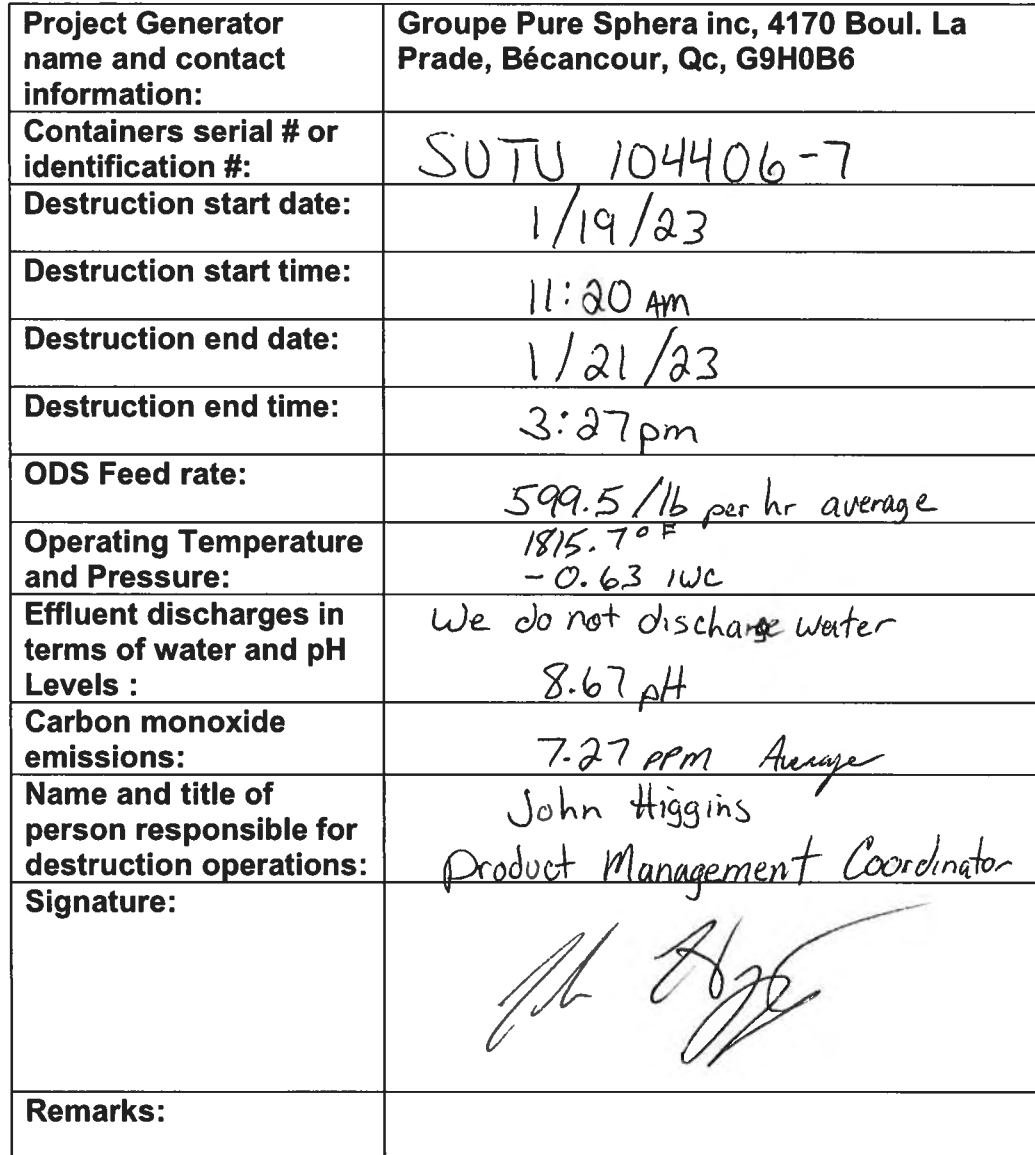 Project Generator
name and contact
information:
Groupe Pure Sphera inc, 4170 Boul. La
Prade, Bécancour, Qc, G9H0B6
Containers serial # or
identification #:
SUTU 104406-7
Destruction start date:
1/19/23
Destruction start time:
11:20 AM
Destruction end date:
1/21/23
Destruction end time:
3:27pm
ODS Feed rate:
599.5/lb per hr average
Operating Temperature
and Pressure:
1815.7°F
-0.63 IWC
Effluent discharges in
terms of water and pH
Levels :
We do not discharge water
8.67 pH
Carbon monoxide
emissions:
7.27 PPM Average
Name and title of
person responsible for
destruction operations:
John Higgins
Product Management Coordinator
Signature:
Remarks: